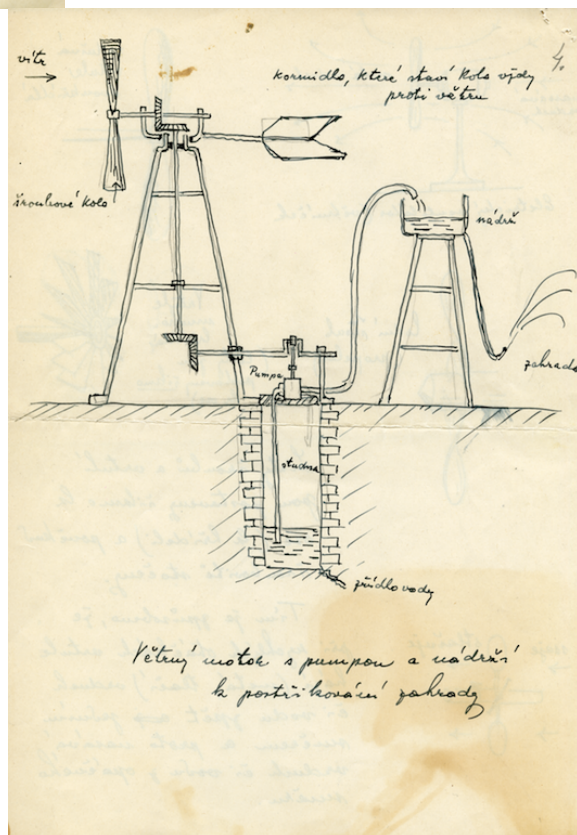 4.
vítr
kormidlo, které staví kolo vždy
proti větru
šroubové kolo
nádrž
zahrada
Pumpa
studna
zřídlo vody
Větrný motor s pumpou a nádrží
k postřikování zahrady